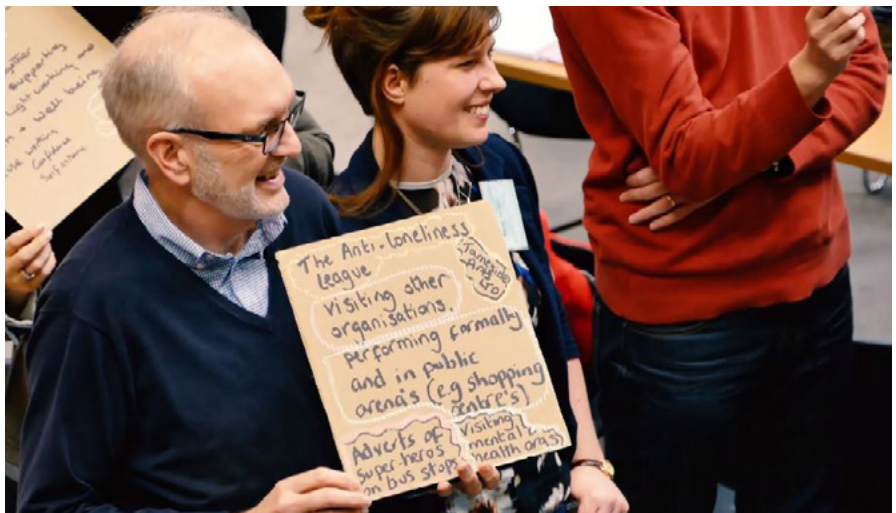 gether
supporting
light working and
+ well being
working
Confidence
Self esteem
The Anti-loneliness
League
Tameside
Arts
LTD
visiting other
organisations.
performing formally
and in public
arena's (e.g shopping
centre's)
Adverts of
super-hero's
on bus stops
visiting
mental
health orgs)